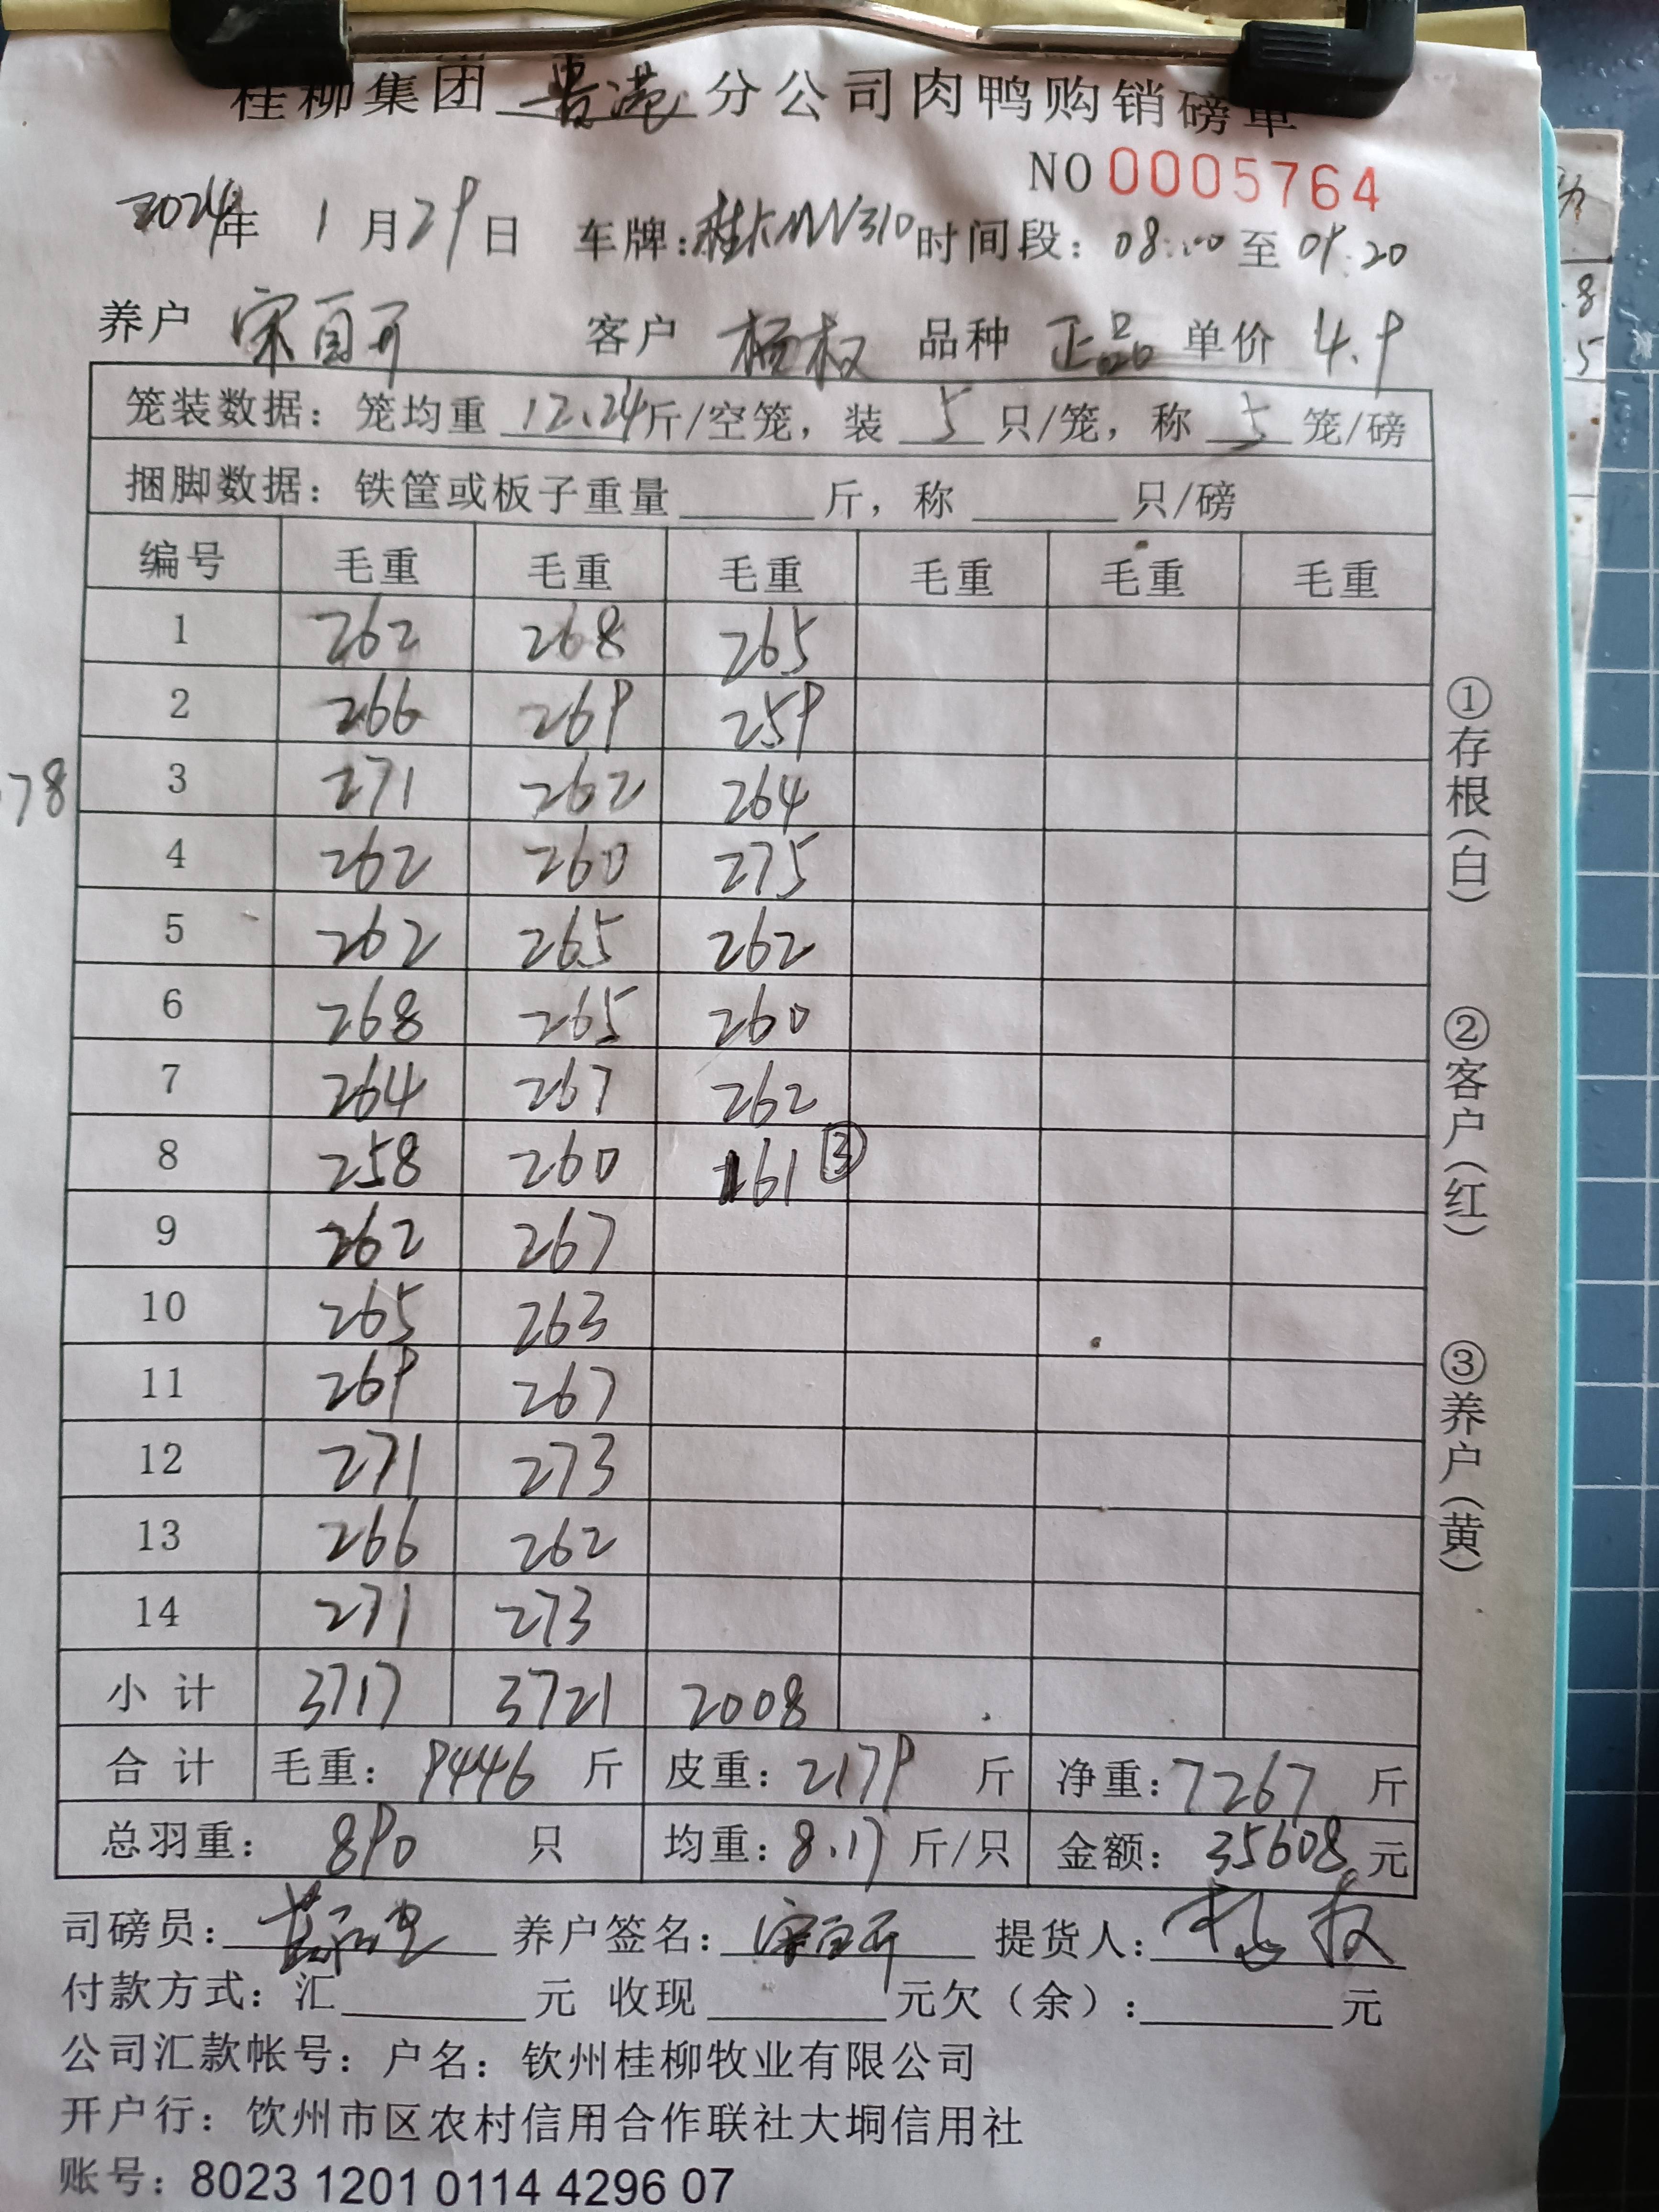 桂柳集团 贵港 分公司肉鸭购销磅单
NO 0005764
2024年 1 月 29 日 车牌: 310 时间段: 08:00 至 09:20
养户 宋 客户 杨权 品种 正品 单价 4.9
笼装数据: 笼均重 12.24 斤/空笼, 装 5 只/笼, 称 5 笼/磅
捆脚数据: 铁筐或板子重量 斤, 称 只/磅
编号 毛重 毛重 毛重 毛重 毛重 毛重
1 262 268 265
2 266 269 259
3 271 262 264
78
4 262 260 275
5 262 265 262
6 268 265 260
7 264 267 262
8 258 260 161 ③
9 262 267
10 265 263
11 269 267
12 271 273
13 266 262
14 271 273
小 计 3717 3721 2008
合 计 毛重: 9446 斤 皮重: 2179 斤 净重: 7267 斤
总羽重: 890 只 均重: 8.17 斤/只 金额: 35608 元
司磅员: 养户签名: 宋 提货人: 杨权
付款方式: 汇 元 收现 元欠(余): 元
公司汇款帐号: 户名: 钦州桂柳牧业有限公司
开户行: 钦州市区农村信用合作联社大垌信用社
账号: 8023 1201 0114 4296 07
①存根(白)
②客户(红)
③养户(黄)